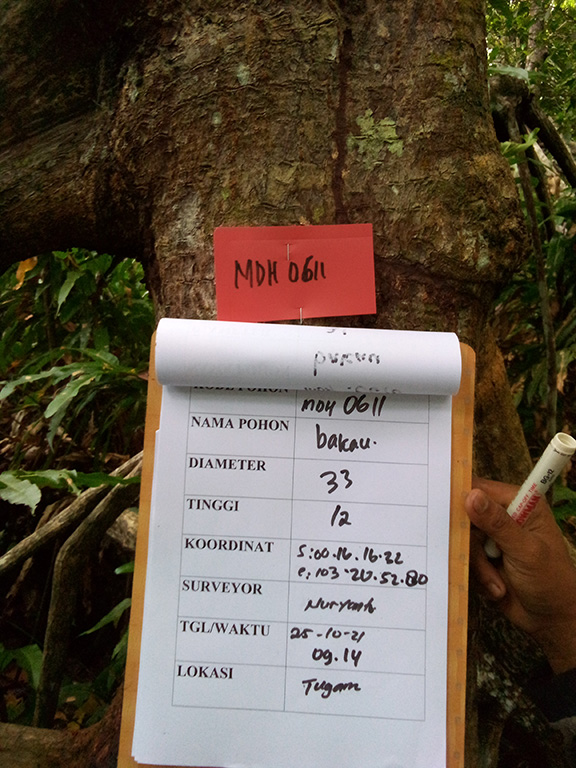 MDH 0611
KODE POHON
MDH 0611
NAMA POHON
bakau.
DIAMETER
33
TINGGI
12
KOORDINAT
S:00.16.16.22
e:103.20.52.80
SURVEYOR
TGL/WAKTU
25-10-21
09.14
LOKASI
Tugam